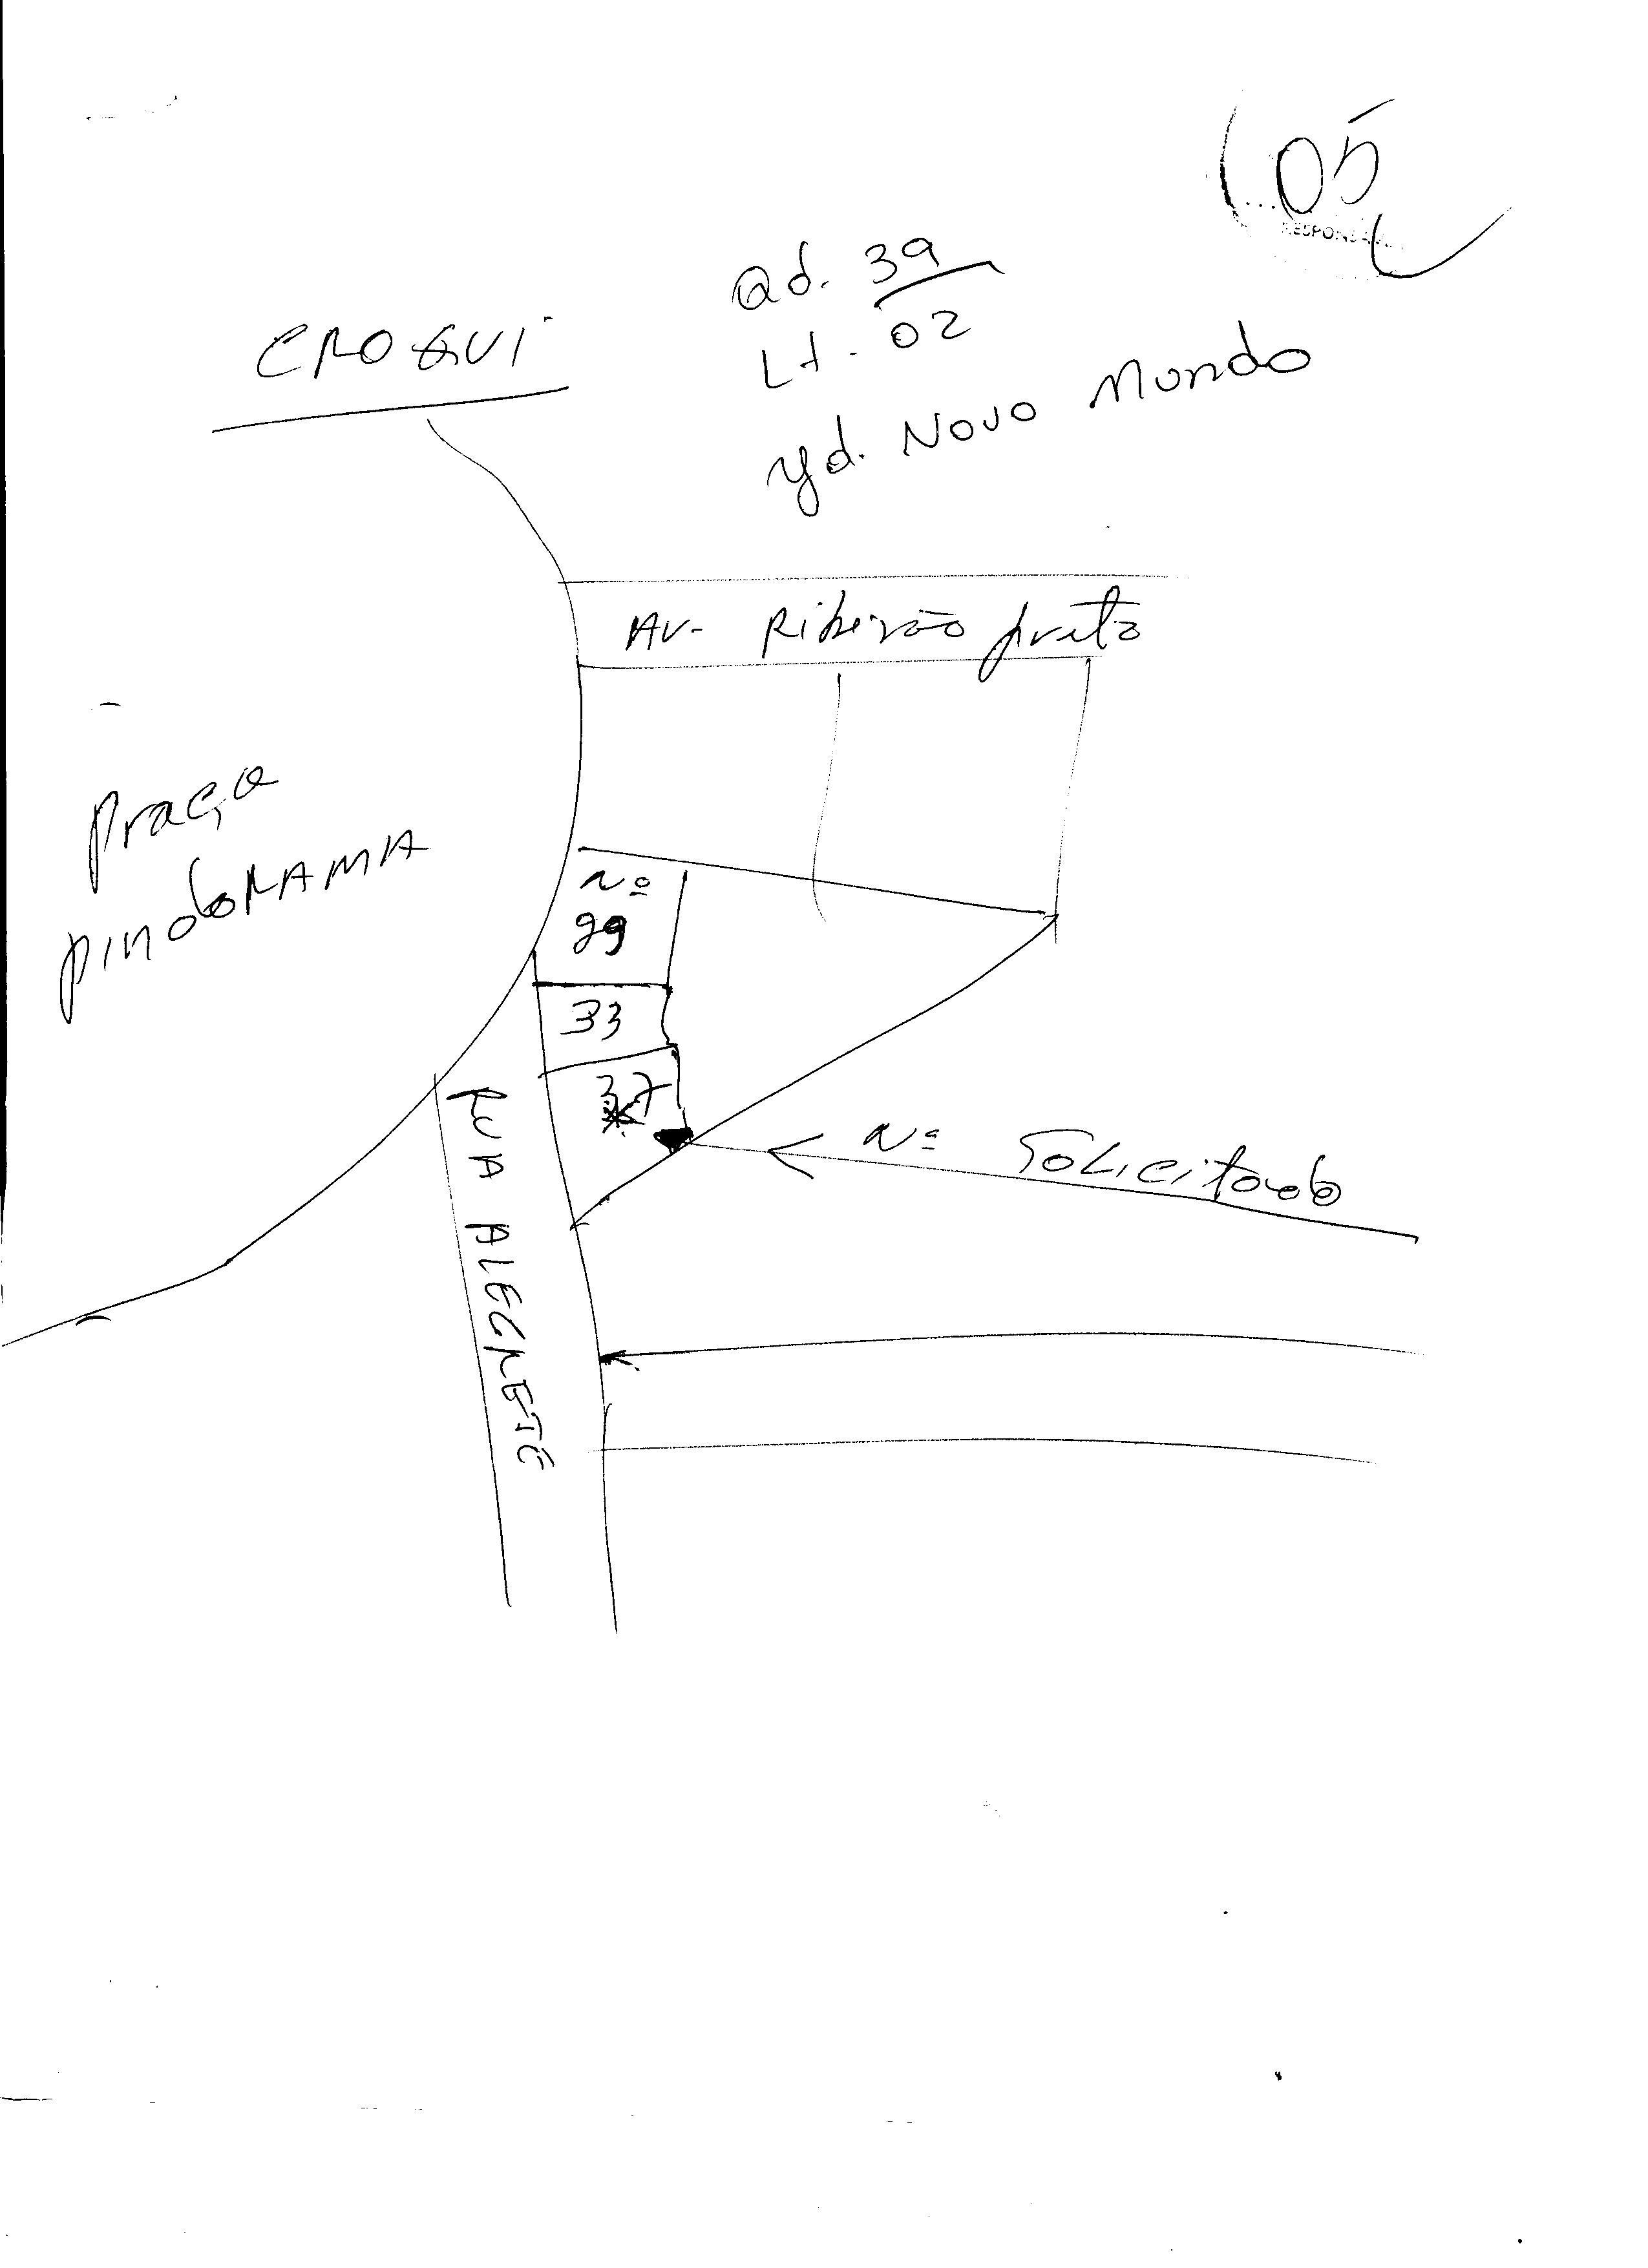 05
Qd. 39
Lt. 02
Jd. Novo Mundo
CROQUI
Av. Ribeirão preto
praça
pindoRAMA
Nº
29
33
37
Nº Solicitado
RUA ALEGRETE